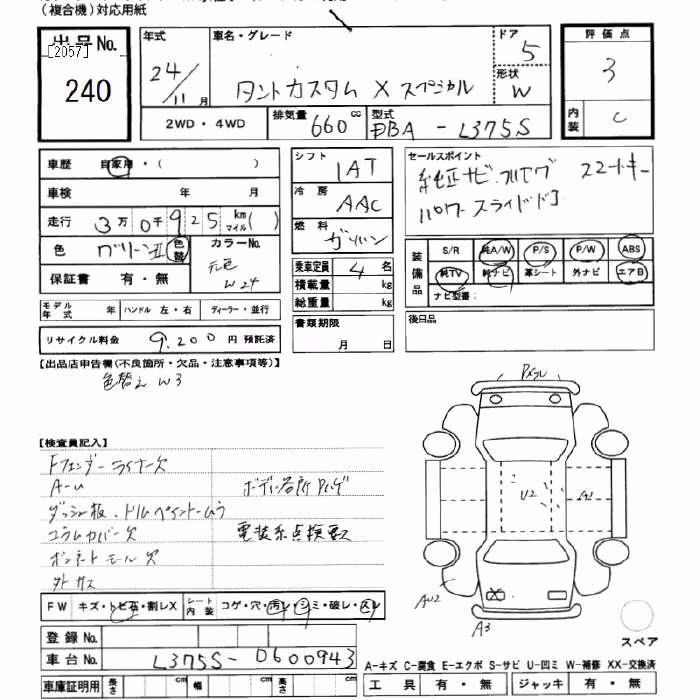 (複合機)対応用紙
出品No.
[2057]
240
年式
24/11月
車名・グレード
タントカスタム X スペシャル
ドア
5
形状
W
評価点
3
内装
C
2WD・4WD
排気量 660 cc
型式
DBA - L375S
車歴 自家用・( )
車検 年 月
走行 3万0千925 km マイル( )
色 グリーンII 色替
カラーNo.
元色
W24
保証書 有・無
シフト
1AT
冷房
AAC
燃料
ガソリン
乗車定員 4名
積載量 kg
総重量 kg
書類期限
月 日
セールスポイント
純正ナビ.フルセグ スマートキー
パワースライドドア
装備品
S/R 純A/W P/S P/W ABS
純TV 純ナビ 革シート 外ナビ エアB
ナビ型番:
後日品
モデル年式 年 ハンドル 左・右 ディーラー・並行
リサイクル料金 9.200円 預託済
【出品店申告欄(不良箇所・欠品・注意事項等)】
色替え W3
【検査員記入】
Fフェンダーライナー欠
ダッシュ板、
コラムカバー欠
ボンネットモール欠
外キズ
電装系点検要
FW キズ・トビ石・割レX
シート内装 コゲ・穴・汚レ・シミ・破レ・スレ
登録No.
車台No. L375S-0600943
車庫証明用 長さ cm 幅 cm 高さ cm
U2
AU2
A3
スペア
A-キズ C-腐食 E-エクボ S-サビ U-凹ミ W-補修 XX-交換済
工具 有・無 ジャッキ 有・無